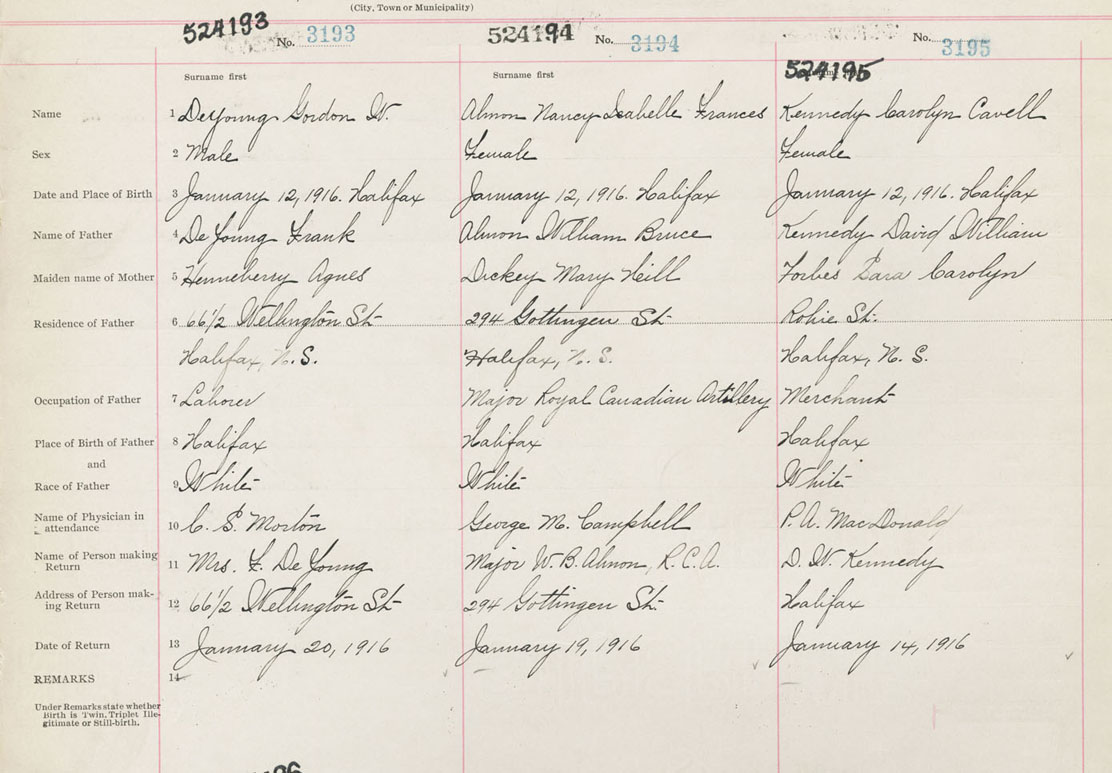 (City, Town or Municipality)
524193 No. 3193 524194 No. 3194 No. 3195
Surname first Surname first 524195
Name 1 DeYoung Gordon W. Almon Nancy Isabelle Frances Kennedy Carolyn Cavell
Sex 2 Male Female Female
Date and Place of Birth 3 January 12, 1916. Halifax January 12, 1916. Halifax January 12, 1916. Halifax
Name of Father 4 De Young Frank Almon William Bruce Kennedy David William
Maiden name of Mother 5 Henneberry Agnes Dickey Mary Neill Forbes Sara Carolyn
Residence of Father 6 66 1/2 Wellington St 294 Gottingen St. Robie St.
Halifax, N. S. Halifax, N. S. Halifax, N. S.
Occupation of Father 7 Laborer Major Royal Canadian Artillery Merchant
Place of Birth of Father 8 Halifax Halifax Halifax
and
Race of Father 9 White White White
Name of Physician in
attendance 10 C. S. Morton George M. Campbell P. A. MacDonald
Name of Person making
Return 11 Mrs. F. De Young Major W. B. Almon, R. C. A. D. W. Kennedy
Address of Person mak-
ing Return 12 66 1/2 Wellington St 294 Gottingen St. Halifax
Date of Return 13 January 20, 1916 January 19, 1916 January 14, 1916
REMARKS 14
Under Remarks state whether
Birth is Twin, Triplet Ille-
gitimate or Still-birth.